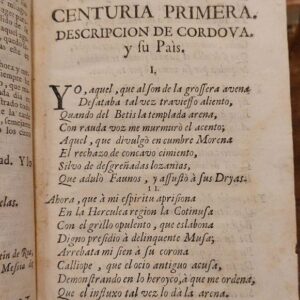 CENTURIA PRIMERA.
DESCRIPCION DE CORDOVA.
y su Pais.
I.
Yo, aquel, que al son de la grossera avena
Desataba tal vez traviesso aliento,
Quando del Betis la templada arena,
Con rauda voz me murmurò el acento;
Aquel, que divulgò en cumbre Morena
El rechazo de concavo cimiento,
Silvo de desgreñadas lozanias,
Que adulò Faunos, y assustò à sus Dryas.
II.
Ahora, que à mi espiritu aprisiona
En la Herculea region la Cotinusa
Con el grillo opulento, que eslabona
Digno presidio à delinquente Musa;
Arrebata mi sien à su corona
Calliope, que el ocio antiguo acusa,
Demonstrando en lo heroyco, à que me ordena,
Que el influxo tal vez lo da la arena.